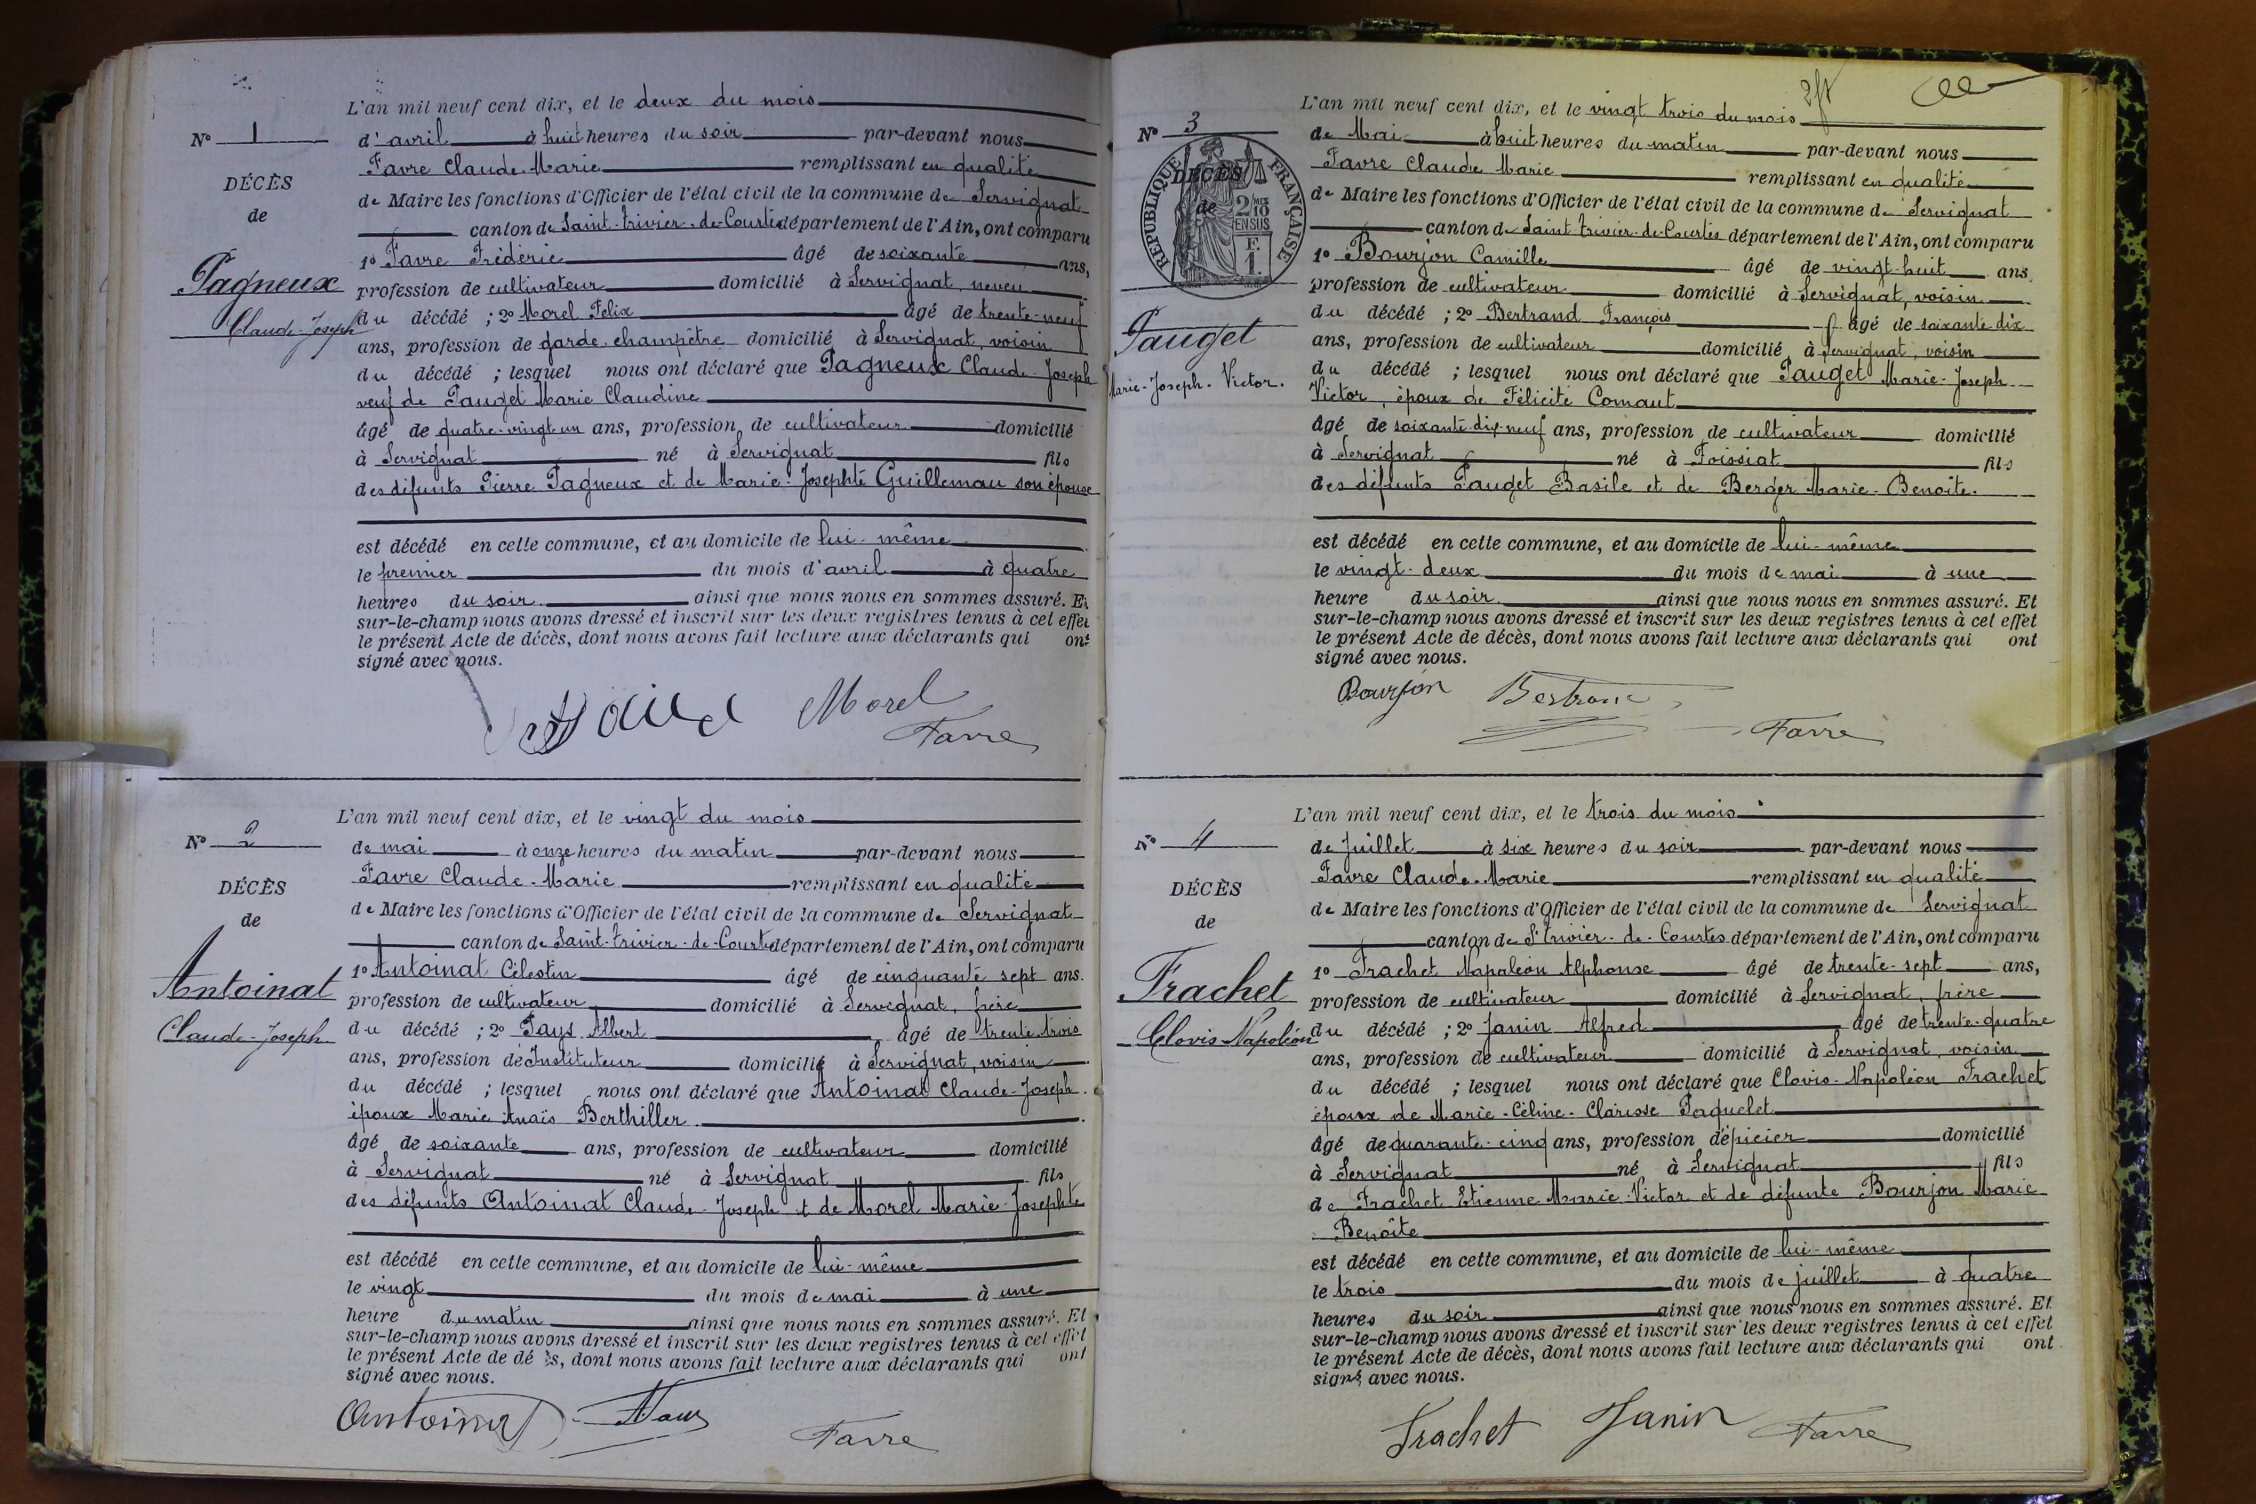 L'an mil neuf cent dix, et le deux du mois
N° 1
d'avril à huit heures du soir par-devant nous
Favre Claude-Marie remplissant en qualité
DÉCÈS
de Maire les fonctions d'Officier de l'état civil de la commune de Servignat
de
canton de Saint-Trivier-de-Courtes département de l'Ain, ont comparu
1° Favre Frédéric âgé de soixante ans,
Pagneux
profession de cultivateur domicilié à Servignat, neveu
Claude-Joseph
du décédé ; 2° Morel Félix âgé de trente-neuf
ans, profession de garde champêtre domicilié à Servignat, voisin
du décédé ; lesquel nous ont déclaré que Pagneux Claude-Joseph
veuf de Pauget Marie Claudine
âgé de quatre-vingt-un ans, profession de cultivateur domicilié
à Servignat né à Servignat fils
des défunts Pierre Pagneux et de Marie-Josephte Guillemau son épouse
est décédé en cette commune, et au domicile de lui-même
le premier du mois d'avril à quatre
heures du soir ainsi que nous nous en sommes assuré. Et
sur-le-champ nous avons dressé et inscrit sur les deux registres tenus à cet effet
le présent Acte de décès, dont nous avons fait lecture aux déclarants qui ont
signé avec nous.
Morel
Favre
L'an mil neuf cent dix, et le vingt du mois
N° 2
de mai à onze heures du matin par-devant nous
Favre Claude-Marie remplissant en qualité
DÉCÈS
de Maire les fonctions d'Officier de l'état civil de la commune de Servignat
de
canton de Saint-Trivier-de-Courtes département de l'Ain, ont comparu
1° Antoinat Célestin âgé de cinquante sept ans.
Antoinat
profession de cultivateur domicilié à Servignat, frère
Claude-Joseph
du décédé ; 2° Pays Albert âgé de trente trois
ans, profession de Instituteur domicilié à Servignat, voisin
du décédé ; lesquel nous ont déclaré que Antoinat Claude-Joseph
époux Marie Anaïs Berthiller
âgé de soixante ans, profession de cultivateur domicilié
à Servignat né à Servignat fils
des défunts Antoinat Claude-Joseph et de Morel Marie-Josephte
est décédé en cette commune, et au domicile de lui-même
le vingt du mois de mai à une
heure du matin ainsi que nous nous en sommes assuré. Et
sur-le-champ nous avons dressé et inscrit sur les deux registres tenus à cet effet
le présent Acte de décès, dont nous avons fait lecture aux déclarants qui ont
signé avec nous.
Antoinat
Favre
L'an mil neuf cent dix, et le vingt trois du mois
N° 3
de Mai à huit heures du matin par-devant nous
Favre Claude Marie remplissant en qualité
DÉCÈS
RÉPUBLIQUE FRANÇAISE
de Maire les fonctions d'Officier de l'état civil de la commune de Servignat
de
2/10 EN SUS
canton de Saint-Trivier-de-Courtes département de l'Ain, ont comparu
1° Bourjon Camille âgé de vingt-huit ans
profession de cultivateur domicilié à Servignat, voisin
Pauget
du décédé ; 2° Bertrand François âgé de soixante dix
ans, profession de cultivateur domicilié à Servignat, voisin
Marie-Joseph-Victor.
du décédé ; lesquel nous ont déclaré que Pauget Marie-Joseph
Victor, époux de Félicité Comaut
âgé de soixante-dix-neuf ans, profession de cultivateur domicilié
à Servignat né à Foissiat fils
des défunts Pauget Basile et de Berger Marie-Benoite.
est décédé en cette commune, et au domicile de lui-même
le vingt-deux du mois de mai à une
heure du soir ainsi que nous nous en sommes assuré. Et
sur-le-champ nous avons dressé et inscrit sur les deux registres tenus à cet effet
le présent Acte de décès, dont nous avons fait lecture aux déclarants qui ont
signé avec nous.
Bourjon Bertrand
Favre
L'an mil neuf cent dix, et le trois du mois
N° 4
de Juillet à six heures du soir par-devant nous
Favre Claude-Marie remplissant en qualité
DÉCÈS
de Maire les fonctions d'Officier de l'état civil de la commune de Servignat
de
canton de St Trivier-de-Courtes département de l'Ain, ont comparu
1° Frachet Napoléon Alphonse âgé de trente-sept ans,
Frachet
profession de cultivateur domicilié à Servignat, frère
Clovis Napoléon
du décédé ; 2° Janin Alfred âgé de trente-quatre
ans, profession de cultivateur domicilié à Servignat, voisin
du décédé ; lesquel nous ont déclaré que Clovis-Napoléon Frachet
époux de Marie-Céline-Clarisse Paquelet
âgé de quarante-cinq ans, profession d'épicier domicilié
à Servignat né à Servignat fils
de Frachet Etienne Marie-Victor et de défunte Bourjon Marie
Benoîte
est décédé en cette commune, et au domicile de lui-même
le trois du mois de juillet à quatre
heures du soir ainsi que nous nous en sommes assuré. Et
sur-le-champ nous avons dressé et inscrit sur les deux registres tenus à cet effet
le présent Acte de décès, dont nous avons fait lecture aux déclarants qui ont
signé avec nous.
Frachet Janin Favre